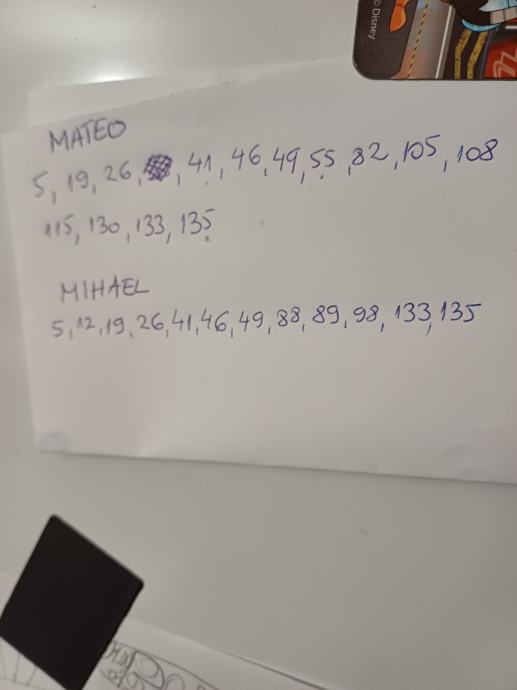 © Disney
MATEO
5, 19, 26, , 41, 46, 49, 55, 82, 105, 108
115, 130, 133, 135
MIHAEL
5, 12, 19, 26, 41, 46, 49, 88, 89, 98, 133, 135